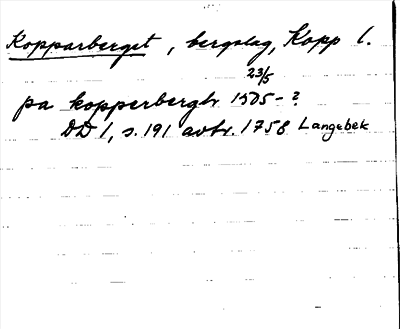 Kopparberget, bergslag, Kopp l.
23/5
pa kopperbergh 1505-?
DD 1, s. 191 avtr. 1758 Langebek